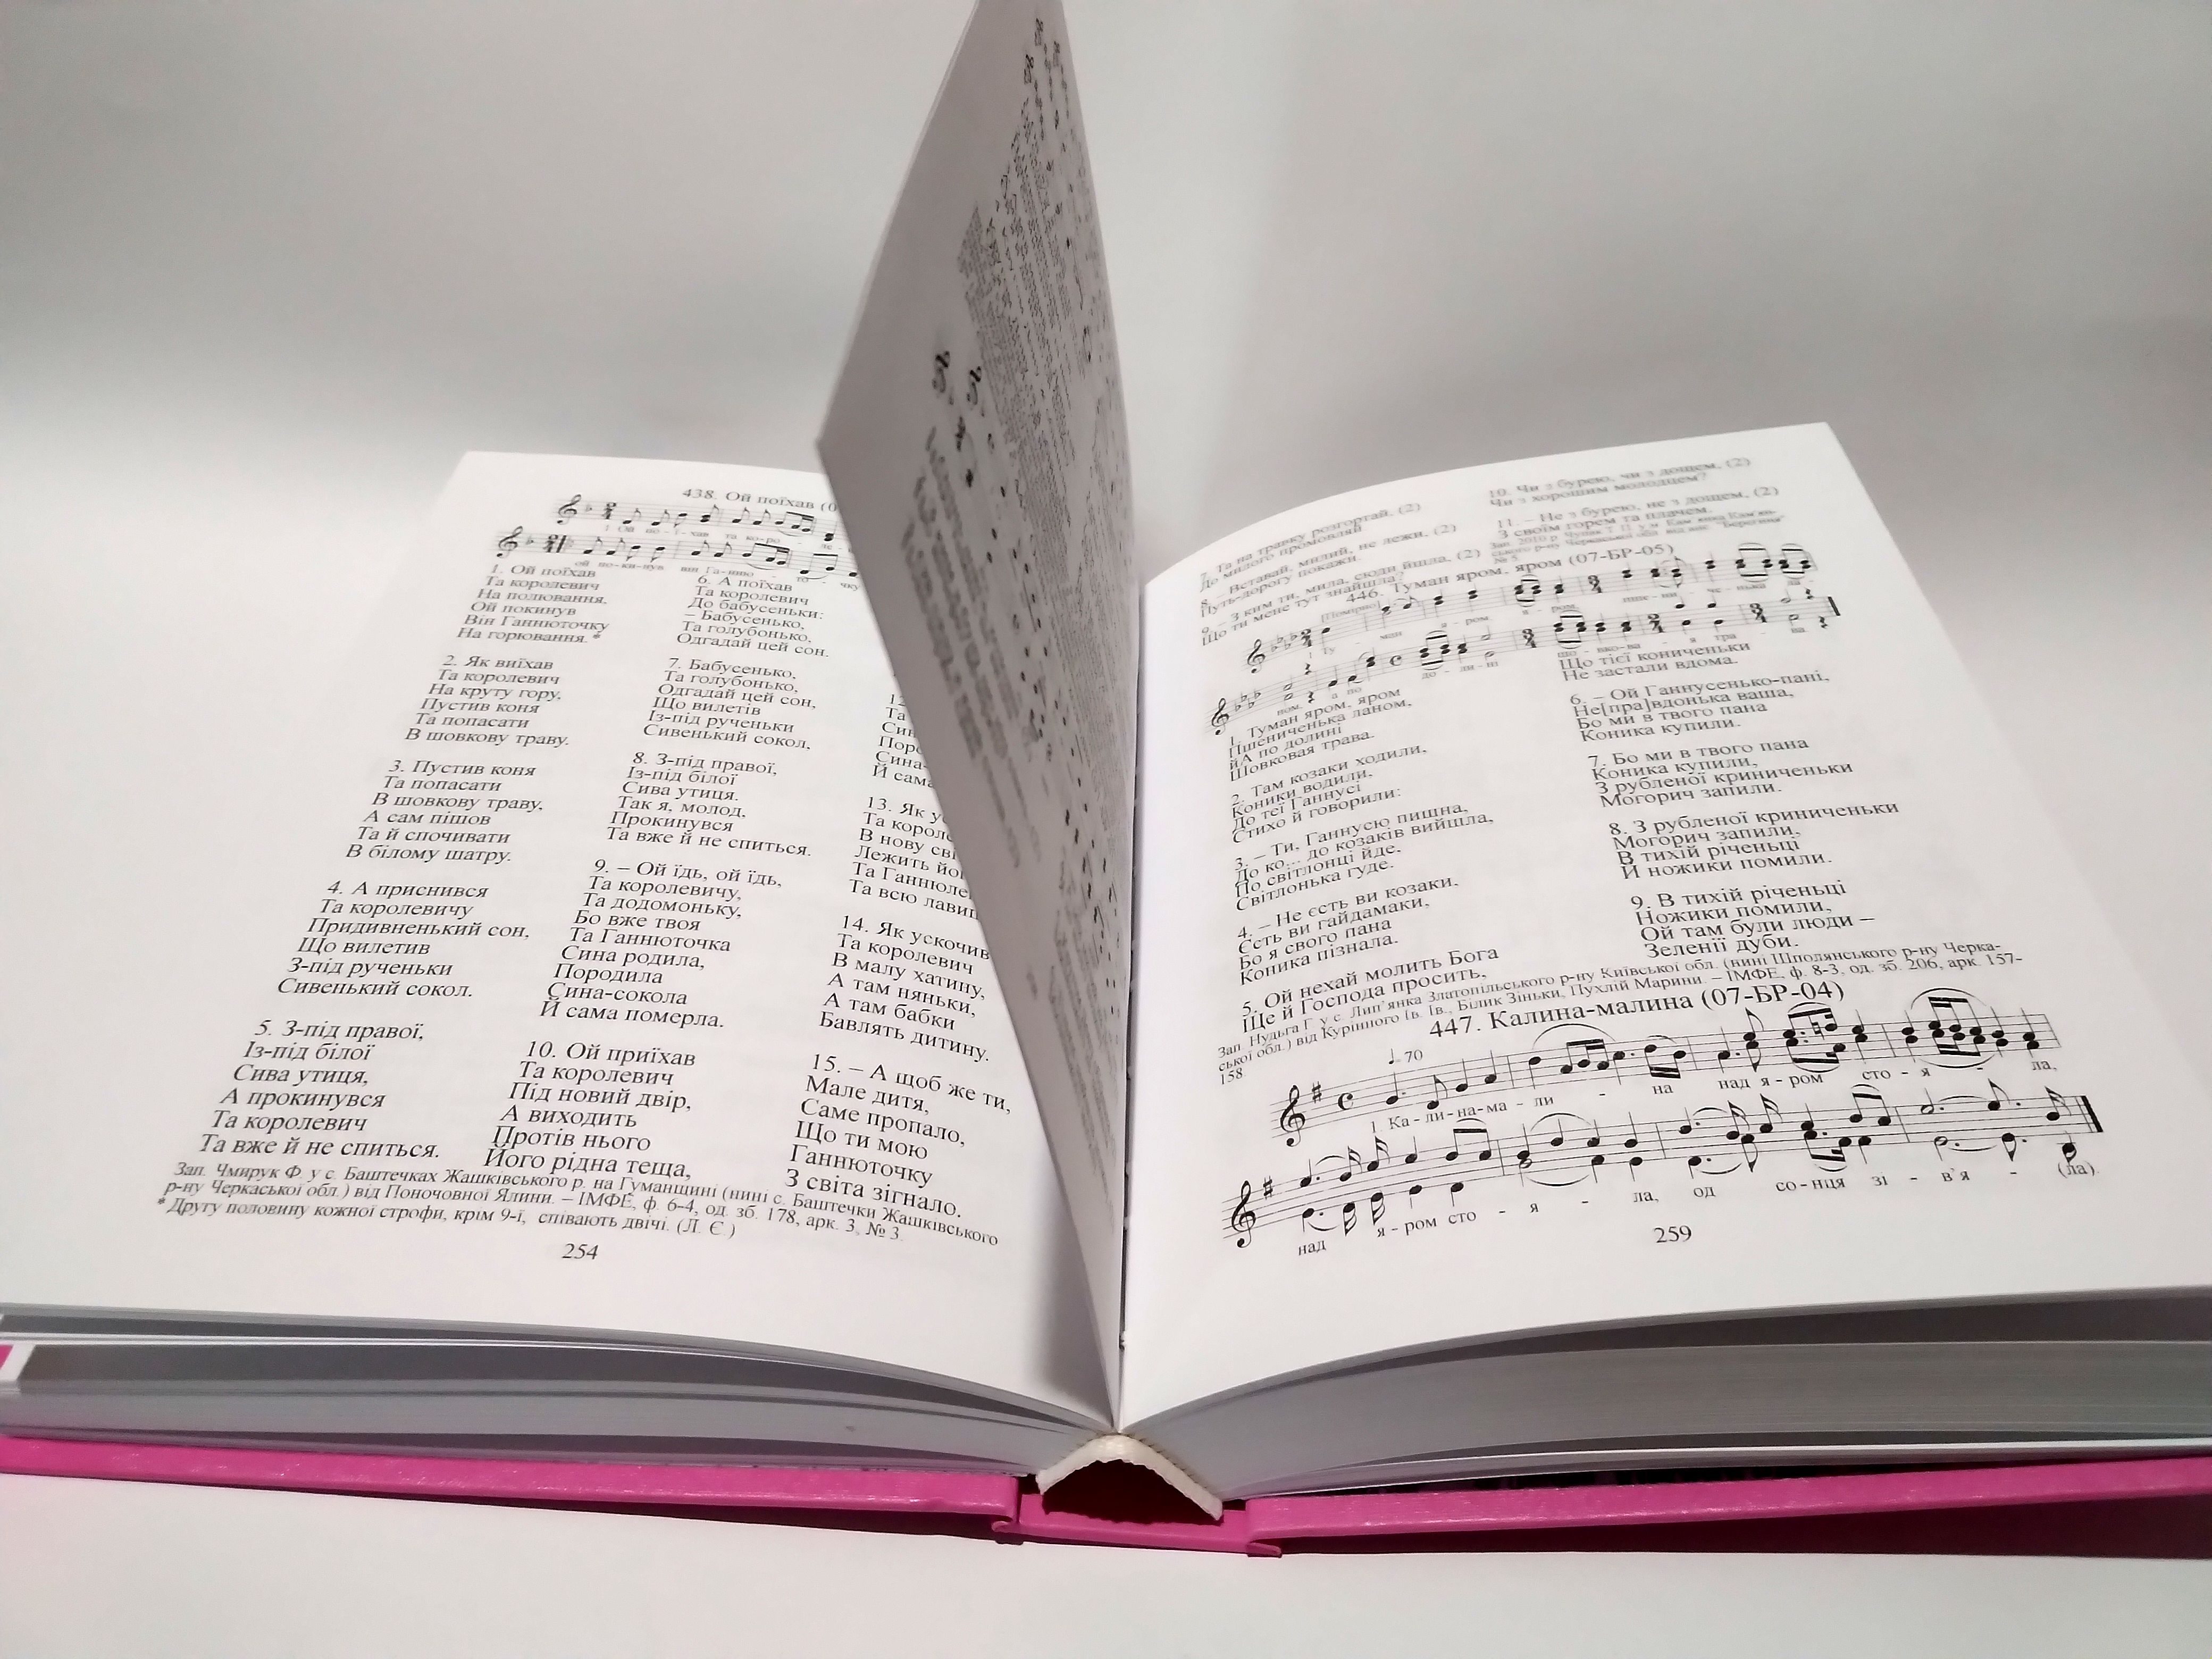 438. Ой поїхав
1. Ой поїхав
Та королевич
На полювання,
Ой покинув
Він Ганнюточку
На горювання.*
2. Як виїхав
Та королевич
На круту гору,
Пустив коня
Та попасати
В шовкову траву.
3. Пустив коня
Та попасати
В шовкову траву,
А сам пішов
Та й спочивати
В білому шатру.
4. А приснився
Та королевичу
Придивненький сон,
Що вилетив
З-під рученьки
Сивенький сокол.
5. З-під правої,
Із-під білої
Сива утиця,
А прокинувся
Та королевич
Та вже й не спиться.
6. А поїхав
Та королевич
До бабусеньки:
– Бабусенько,
Та голубонько,
Одгадай цей сон.
7. Бабусенько,
Та голубонько,
Одгадай цей сон,
Що вилетів
Із-під рученьки
Сивенький сокол,
8. З-під правої,
Із-під білої
Сива утиця.
Так я, молод,
Прокинувся
Та вже й не спиться.
9. – Ой їдь, ой їдь,
Та королевичу,
Та додомоньку,
Бо вже твоя
Та Ганнюточка
Сина родила,
Породила
Сина-сокола
Й сама померла.
10. Ой приїхав
Та королевич
Під новий двір,
А виходить
Протів нього
Його рідна теща,
12
Та
Син
Поро
Сина-
Й сама
13. Як ус
Та короле
В нову сві
Лежить йо
Та Ганнюле
Та всю лави
14. Як ускочив
Та королевич
В малу хатину,
А там няньки,
А там бабки
Бавлять дитину.
15. – А щоб же ти,
Мале дитя,
Саме пропало,
Що ти мою
Ганнюточку
З світа зігнало.
Зап. Чмирук Ф. у с. Баштечках Жашківського р. на Гуманщині (нині с. Баштечки Жашківського
р-ну Черкаської обл.) від Поночовної Ялини. – ІМФЕ, ф. 6-4, од. зб. 178, арк. 3, № 3.
* Другу половину кожної строфи, крім 9-ї, співають двічі. (Л. Є.)
254
7. Та на травку розгортай, (2)
До милого промовляй
8. – Вставай, милий, не лежи, (2)
Путь-дорогу покажи.
9. – З ким ти, мила, сюди йшла, (2)
Що ти мене тут знайшла?
10. Чи з бурею, чи з дощем, (2)
Чи з хорошим молодцем?
11. – Не з бурею, не з дощем, (2)
З своїм горем та плачем.
446. Туман яром, яром (07-БР-05)
1. Туман яром, яром
Пшениченька ланом,
йА по долині
Шовковая трава.
2. Там козаки ходили,
Коники водили,
До теї Ганнусі
Стихо й говорили:
3. – Ти, Ганнусю пишна,
До ко... до козаків вийшла,
По світлонці йде,
Світлонька гуде.
4. – Не єсть ви козаки,
Єсть ви гайдамаки,
Бо я свого пана
Коника пізнала.
5. Ой нехай молить Бога
Ще й Господа просить,
Що тієї кониченьки
Не застали вдома.
6. – Ой Ганнусенько-пані,
Не[пра]вдонька ваша,
Бо ми в твого пана
Коника купили.
7. Бо ми в твого пана
Коника купили,
З рубленої криниченьки
Могорич запили.
8. З рубленої криниченьки
Могорич запили,
В тихій річеньці
Й ножики помили.
9. В тихій річеньці
Ножики помили,
Ой там були люди –
Зеленії дуби.
Зап. Нудьга Г. у с. Лип'янка Златопільського р-ну Київської обл. (нині Шполянського р-ну Черка-
ської обл.) від Курінного Ів. Ів., Білик Зіньки, Пухлій Марини. – ІМФЕ, ф. 8-3, од. зб. 206, арк. 157-
158
447. Калина-малина (07-БР-04)
♩=70
1 Ка-ли-на-ма - ли - на над я - ром сто - я - ла,
над я - ром сто - я - ла, од со-нця зі - в'я - (ла).
259